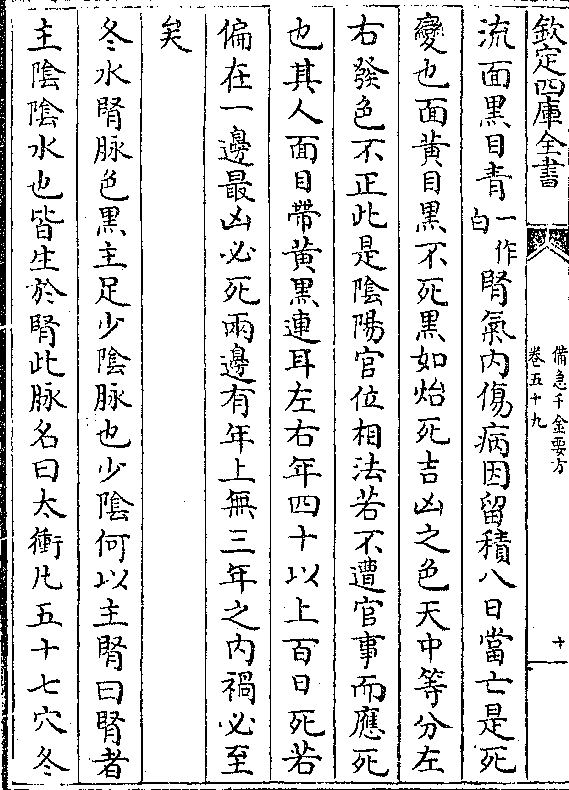 欽定四庫全書
備急千金要方
卷五十九
十
流面黒目青一作白腎氣内傷病因留積八日當亡是死
變也面黄目黒不死黒如炲死吉凶之色天中等分左
右發色不正此是陰陽官位相法若不遭官事而應死
也其人面目帶黄黒連耳左右年四十以上百日死若
偏在一邊最凶必死兩邊有年上無三年之内禍必至
矣
冬水腎脉色黒主足少陰脉也少陰何以主腎曰腎者
主陰陰水也皆生於腎此脉名曰太衝凡五十七穴冬